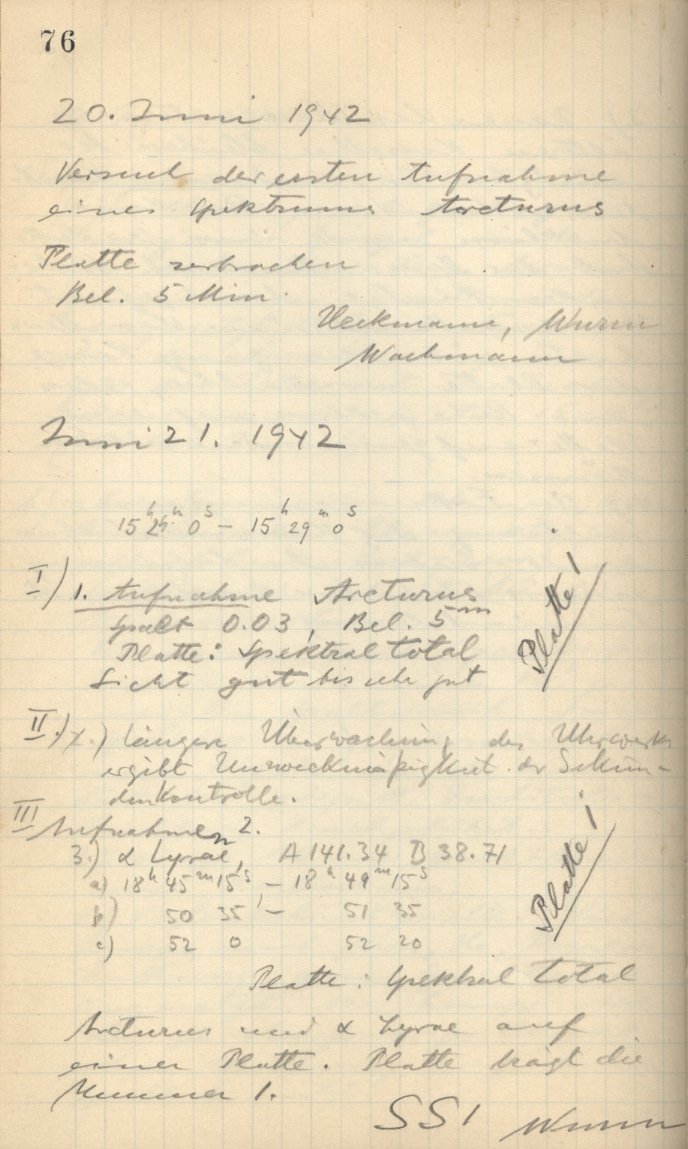 76
20. Juni 1942
Versuch der ersten Aufnahme
eines Spektrums Arcturus
Platte zerbrochen
Bel. 5 Min.
Heckmann, Wurm
Wachmann
Juni 21. 1942
15h 24m 0s – 15h 29m 0s
I) 1. Aufnahme Arcturus
Spalt 0.03, Bel. 5m
Platte: Spektral total
Sicht gut bis sehr gut
Platte 1
II.) längere Überwachung des Uhrwerks
ergibt Unzweckmäßigkeit der Sekun-
denkontrolle.
III Aufnahmen 2.
3.) α Lyrae, A 141.34 B 38.71
a) 18h 45m 15s – 18h 49m 15s
b) 50 35 – 51 35
c) 52 0 52 20
Platte 1
Platte: Spektral total
Arcturus und α Lyrae auf
einer Platte. Platte trägt die
Nummer 1.
SS1 Wurm